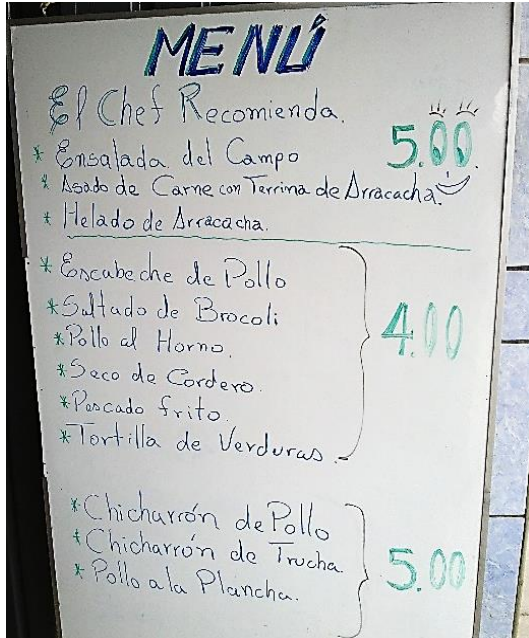 MENÚ
El Chef Recomienda.
* Ensalada del Campo 5.00
* Asado de Carne con Terrina de Arracacha.
* Helado de Arracacha.
* Escabeche de Pollo
* Saltado de Brocoli
* Pollo al Horno. 4.00
* Seco de Cordero.
* Pescado frito.
* Tortilla de Verduras.
* Chicharrón de Pollo
* Chicharrón de Trucha.
* Pollo a la Plancha. 5.00